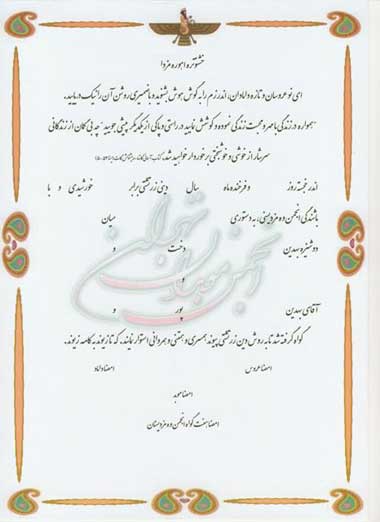 خشنوتره اهوره مزدا
ای نوعروسان و تازه دامادان، اندرزم را به گوش هوش بشنوید و با ضمیری روشن آن را نیک دریابید.
"همواره در زندگی با مهر و محبت زندگی نموده و کوشش نمایید در راستی و پاکی از یکدیگر پیشی جویید" چه بی گمان از زندگانی
سرشار از خوشی و خوشبختی برخوردار خواهید شد.
اندر خجسته روز و فرخنده ماه سال دینی زرتشتی برابر خورشیدی و با
باشندگی انجمن ده مزدیسنی، به دستوری میان
دوشیزه بهدین دخت و
و
آقای بهدین پور و
گواه گرفته شد تا به روش دین زرتشتی پیوند همسری و همتنی و همروانی استوار نمایند. که تا زیوند به کامه زیوند.
امضا عروس امضا داماد
امضا موبد
امضا هفت گواه انجمن ده مزدیسنان
انجمن موبدان تهران